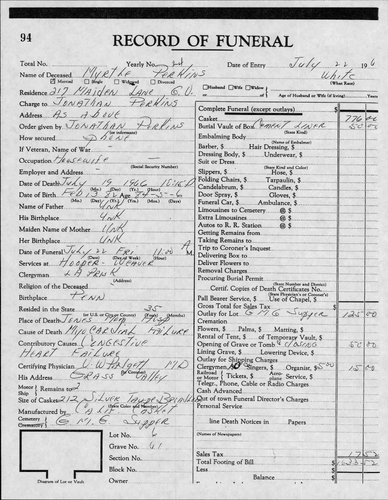 94
RECORD OF FUNERAL
Total No. Yearly No. Date of Entry July 22 196
Name of Deceased Myrtle Perkins White
Married Single Widowed Divorced (What Race)
Residence 217 Maiden Lane G.V. Husband Wife Widow
of Age of Husband or Wife (if living) Years
Charge to Jonathan Perkins
Address As Above
Order given by Jonathan Perkins
How secured
If Veteran, of War
Occupation Housewife
(Social Security Number)
Employer and Address
Date of Death July 19 1966
Date of Birth Feb
Name of Father Unk
His Birthplace Unk
Maiden Name of Mother Unk
Her Birthplace Unk
Date of Funeral July 22 Fri 11:00 A M
Services at Hooper-Weaver
Clergyman
Religion of the Deceased
Birthplace Penn
Resided in the State 35
Place of Death Jones Mem Hosp
Cause of Death Myocardial Failure
Contributory Causes Congestive
Heart Failure
Certifying Physician MD
His Address Grass Valley
Motor Remains to
Ship
Size of Casket 212 Silver
Manufactured by Calif Casket
Cemetery G.M.G. Supper
Lot No. 6
Grave No. 61
Section No.
Block No.
Owner
Diagram of Lot or Vault
Complete Funeral (except outlays) $
Casket 776 00
Burial Vault or Box Cement Liner 50 00
(State Kind)
Embalming Body
(Name of Embalmer)
Barber, $ Hair Dressing, $
Dressing Body, $ Underwear, $
Suit or Dress
(State Kind and Color)
Slippers, $ Hose, $
Folding Chairs, $ Tarpaulin, $
Candelabrum, $ Candles, $
Door Spray, $ Gloves, $
Funeral Car, $ Ambulance, $
Limousines to Cemetery @ $
Extra Limousines @ $
Autos to R. R. Station @ $
Getting Remains from
Taking Remains to
Trip to Coroner's Inquest
Delivering Box to
Deliver Flowers to
Removal Charges
Procuring Burial Permit
(State Number and District)
Certif. Copies of Death Certificates No.
(State Physician's or Coroner's)
Pall Bearer Service, $ Use of Chapel, $
Gross Total for Sales Tax $
Outlay for Lot G.M.G. Supper 125 00
Cremation
Flowers, $ Palms, $ Matting, $
Rental of Tent, $ of Temporary Vault, $
Opening of Grave or Tomb 50 00
Lining Grave, $ Lowering Device, $
Outlay for Shipping Charges
Clergyman, $ Singers, $ Organist, $ 15 00
Railroad or Motor Tickets, $ Aeroplane Service, $ Taxi, $
Telegr., Phone, Cable or Radio Charges
Cash Advanced
Out of town Funeral Director's Charges
Personal Service
line Death Notices in Papers
(Names of Newspapers)
Sales Tax
Total Footing of Bill $
Less
Balance $